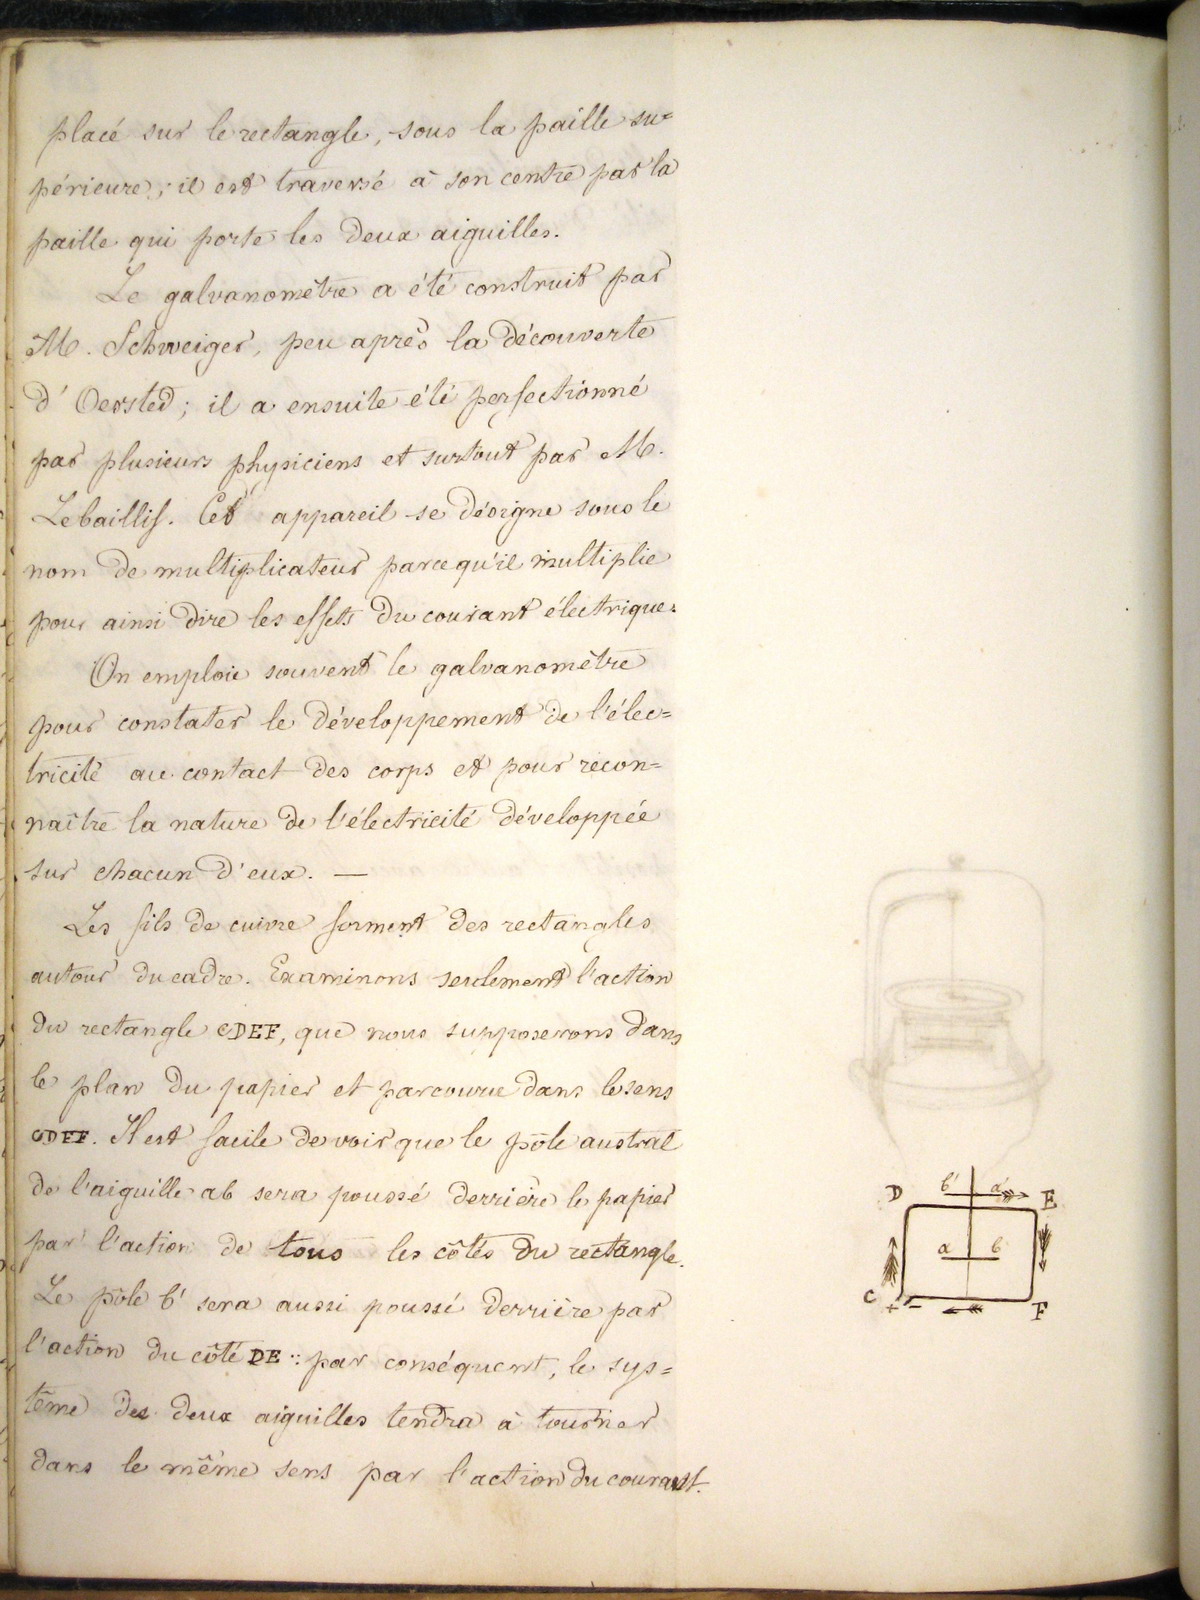 placé sur le rectangle, sous la paille su=
périeure; il est traversé à son centre par la
paille qui porte les deux aiguilles.
Le galvanomètre a été construit par
M. Schweiger, peu après la découverte
d'Oersted; il a ensuite été perfectionné
par plusieurs physiciens et surtout par M.
Lebaillif. Cet appareil se désigne sous le
nom de multiplicateur parcequ'il multiplie
pour ainsi dire les effets du courant électrique.
On emploie souvent le galvanomètre
pour constater le développement de l'élec=
tricité au contact des corps et pour recon=
naître la nature de l'électricité développée
sur chacun d'eux. —
Les fils de cuivre forment des rectangles
autour du cadre. Examinons seulement l'action
du rectangle CDEF, que nous supposerons dans
le plan du papier et parcourue dans le sens
CDEF. Il est facile de voir que le pôle austral
de l'aiguille ab sera poussé derrière le papier
par l'action de tous les côtés du rectangle.
Le pôle b' sera aussi poussé derrière par
l'action du côté DE : par conséquent, le sys=
tême des deux aiguilles tendra à tourner
dans le même sens par l'action du courant.
D b' a' E
a b
C + - F